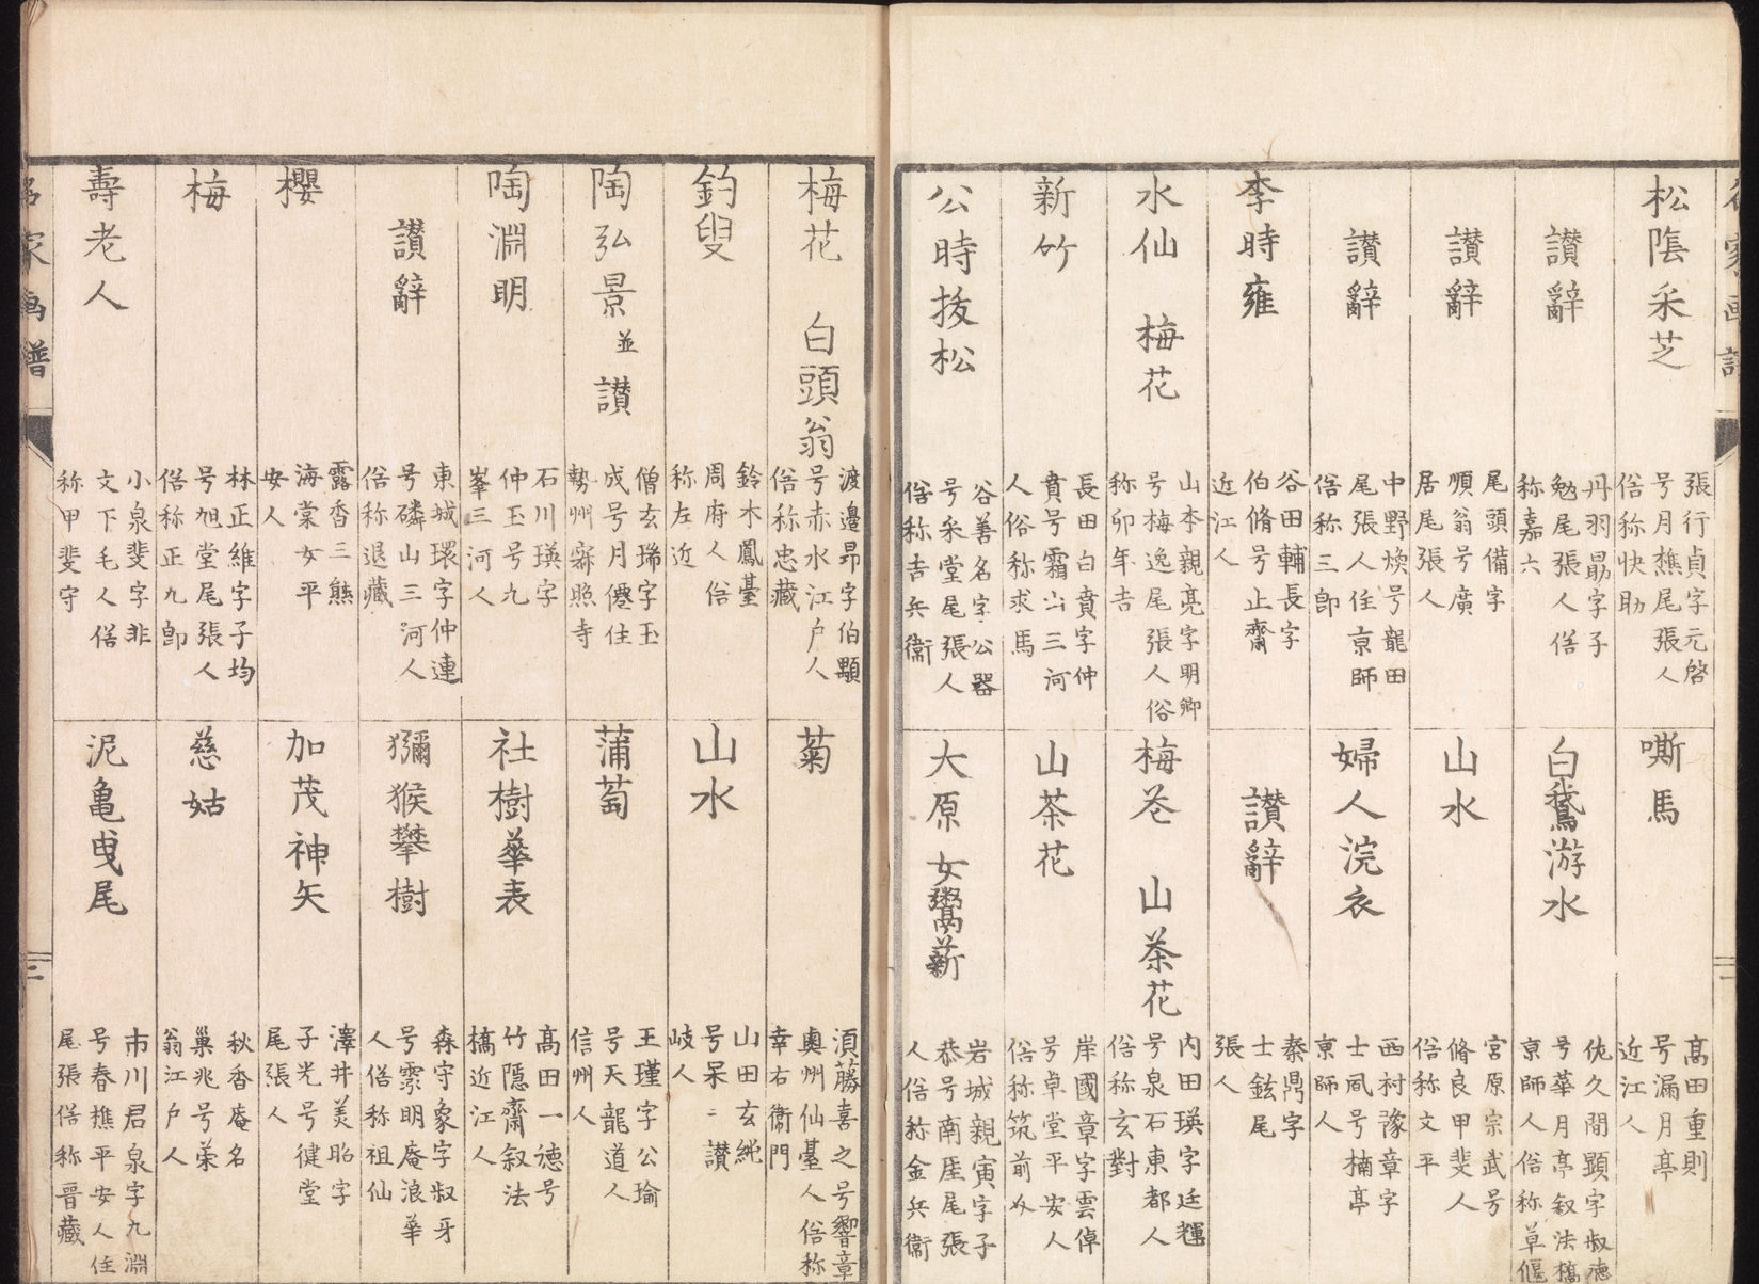 松陰采芝
張行貞字元啓
号月樵尾張人
俗称快助
讃辞
丹羽勗字子
勉尾張人俗
称嘉六
讃辞
尾頭備字
順翁号廣
居尾張人
讃辞
中野煥号龍田
尾張人住京師
俗称三郎
李時雍
谷田輔長字
伯脩号止齋
近江人
水仙 梅花
山本親亮字明卿
号梅逸尾張人俗
称卯年吉
新竹
長田白賁字仲
賁号霜山三河
人俗称求馬
公時拔松
谷善名字公器
号采堂尾張人
俗称吉兵衞
嘶馬
髙田重則
号漏月亭
近江人
白鵞游水
佐久間顕字叔德
号華月亭叙法橋
京師人俗称草偃
山水
宮原宗武号
脩良甲斐人
俗称文平
婦人浣衣
西村豫章字
士風号楠亭
京師人
讃辞
秦鼎字
士鉉尾
張人
梅花 山茶花
内田瑛字廷輝
号泉石東都人
俗称玄對
山茶花
岸國章字雲倬
号卓堂平安人
俗称筑前介
大原女鬻薪
岩城親寅字子
恭号南厓尾張
人俗称金兵衞
梅花 白頭翁
渡邉昂字伯顒
号赤水江户人
俗称忠藏
釣叟
鈴木鳳臺
周府人俗
称左近
陶弘景並讃
僧玄瑞字玉
成号月僊住
勢州寂照寺
陶淵明
石川瑛字
仲玉号九
峯三河人
讃辞
東城環字仲連
号磷山三河人
俗称退藏
櫻
露香三熊
海棠女平
安人
梅
林正維字子均
号旭堂尾張人
俗称正九郎
壽老人
小泉斐字非
文下毛人俗
称甲斐守
菊
須藤喜之号響章
奥州仙臺人俗称
幸右衞門
山水
山田玄純
号呆二讃
岐人
蒲萄
王瑾字公瑜
号天龍道人
信州人
社樹華表
髙田一徳号
竹隠齋叙法
橋近江人
獼猴攀樹
森守象字叔牙
号霁明庵浪華
人俗称祖仙
加茂神矢
澤井美昭字
子光号健堂
尾張人
慈姑
秋香庵名
巢兆号菜
翁江户人
泥亀曳尾
市川君泉字九淵
号春樵平安人住
尾張俗称晋藏